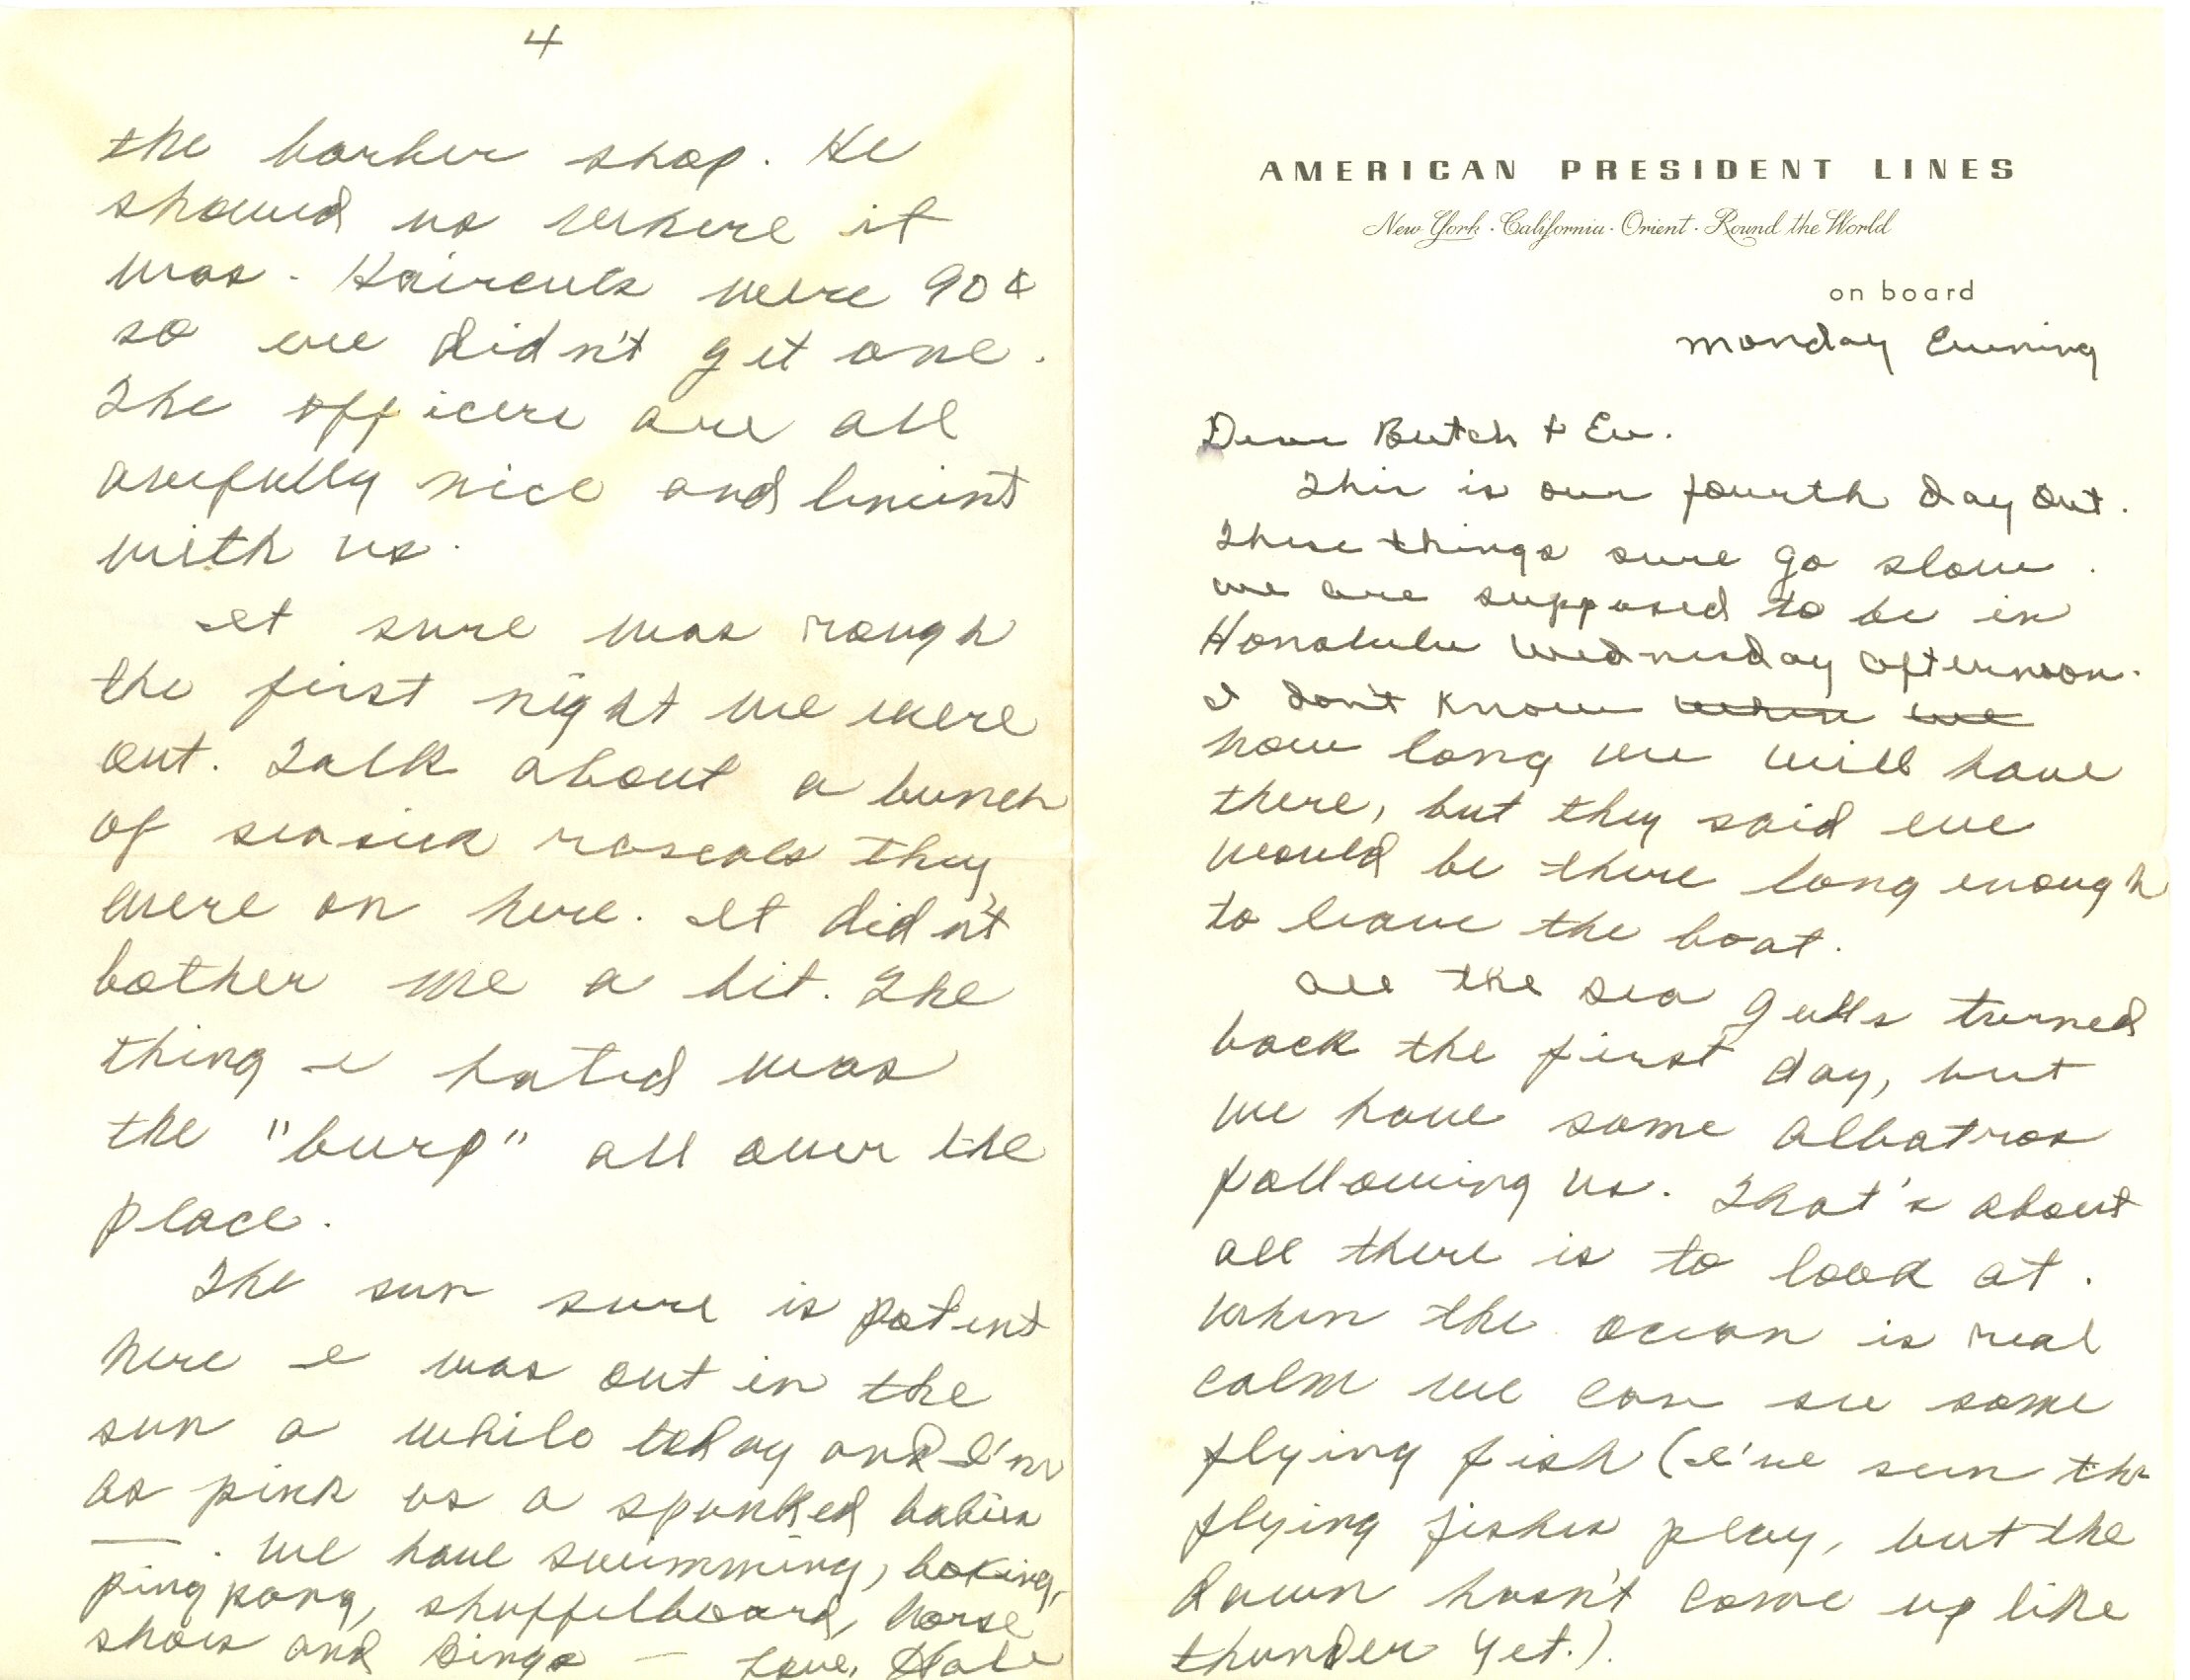 4
the barber shop. He
showed us where it
was. Haircuts were 90¢
so we didn't get one.
The officers are all
awfully nice and linient
with us.
It sure was rough
the first night we were
out. Talk about a bunch
of seasick rascals they
were on here. It didn't
bother me a bit. The
thing I hated was
the "burp" all over the
place.
The sun sure is potent
here I was out in the
sun a while today and I'm
as pink as a spanked babies
—. We have swimming, boxing,
ping pong, shuffelboard, horse
shoes and Bingo — Love, Hale
AMERICAN PRESIDENT LINES
New York · California · Orient · Round the World
on board
Monday Evening
Dear Butch + Ev.
This is our fourth day out.
These things sure go slow.
We are supposed to be in
Honolulu Wednesday afternoon.
I don't know when we
how long we will have
there, but they said we
would be there long enough
to leave the boat.
All the sea gulls turned
back the first day, but
we have some albatros
following us. That's about
all there is to look at.
When the ocean is real
calm we can see some
flying fish (I've seen the
flying fishes play, but the
dawn hasn't come up like
thunder yet.).